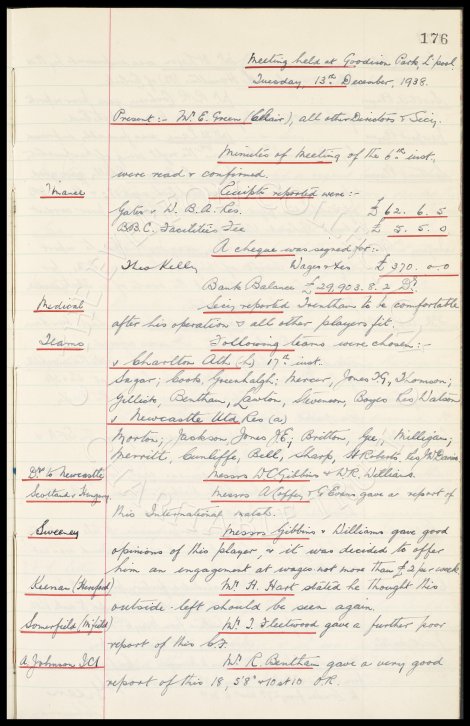 176
Meeting held at Goodison Park, L'pool
Tuesday, 13th December, 1938.
Present :- Mr. E. Green (Chair), all other Directors & Secy.
Minutes of Meeting of the 6th inst.
were read & confirmed.
Finance
Receipts reported were :-
Gates v. W. B. A. Res. £62. 6. 5
B.B.C. Facilities Fee £ 5. 5. 0
A cheque was signed for :-
Theo Kelly Wages & Exs £370. 0. 0
Bank Balance £29,903. 8. 2 Dr.
Medical
Secy reported Trentham to be comfortable
after his operation & all other players fit.
Teams
Following teams were chosen :-
v Charlton Ath (h) 17th inst.
Sagar; Cook, Greenhalgh; Mercer, Jones T.G., Thomson;
Gillick, Bentham, Lawton, Stevenson, Boyes Res Watson
v Newcastle Utd Res (a)
Morton; Jackson, Jones J.E.; Britton, Gee, Milligan;
Merritt, Cunliffe, Bell, Sharp, H. Roberts,
Dr. to Newcastle
Messrs D.C. Gibbins & W.R. Williams.
Scotland v Hungary.
Messrs A. Coffey & G. Evans gave a report of
this International match.
Sweeney
Messrs Gibbins & Williams gave good
opinions of this player, & it was decided to offer
him an engagement at wages not more than £2 per week
Keenan (Hereford)
Mr. H. Hart stated he thought this
outside-left should be seen again.
Somerfield (M'field)
Mr. T. Fleetwood gave a further poor
report of this C.F.
A. Johnson
Mr. R. Bentham gave a very good
report of this 18, 5'8" & 10 st 10 O.R.